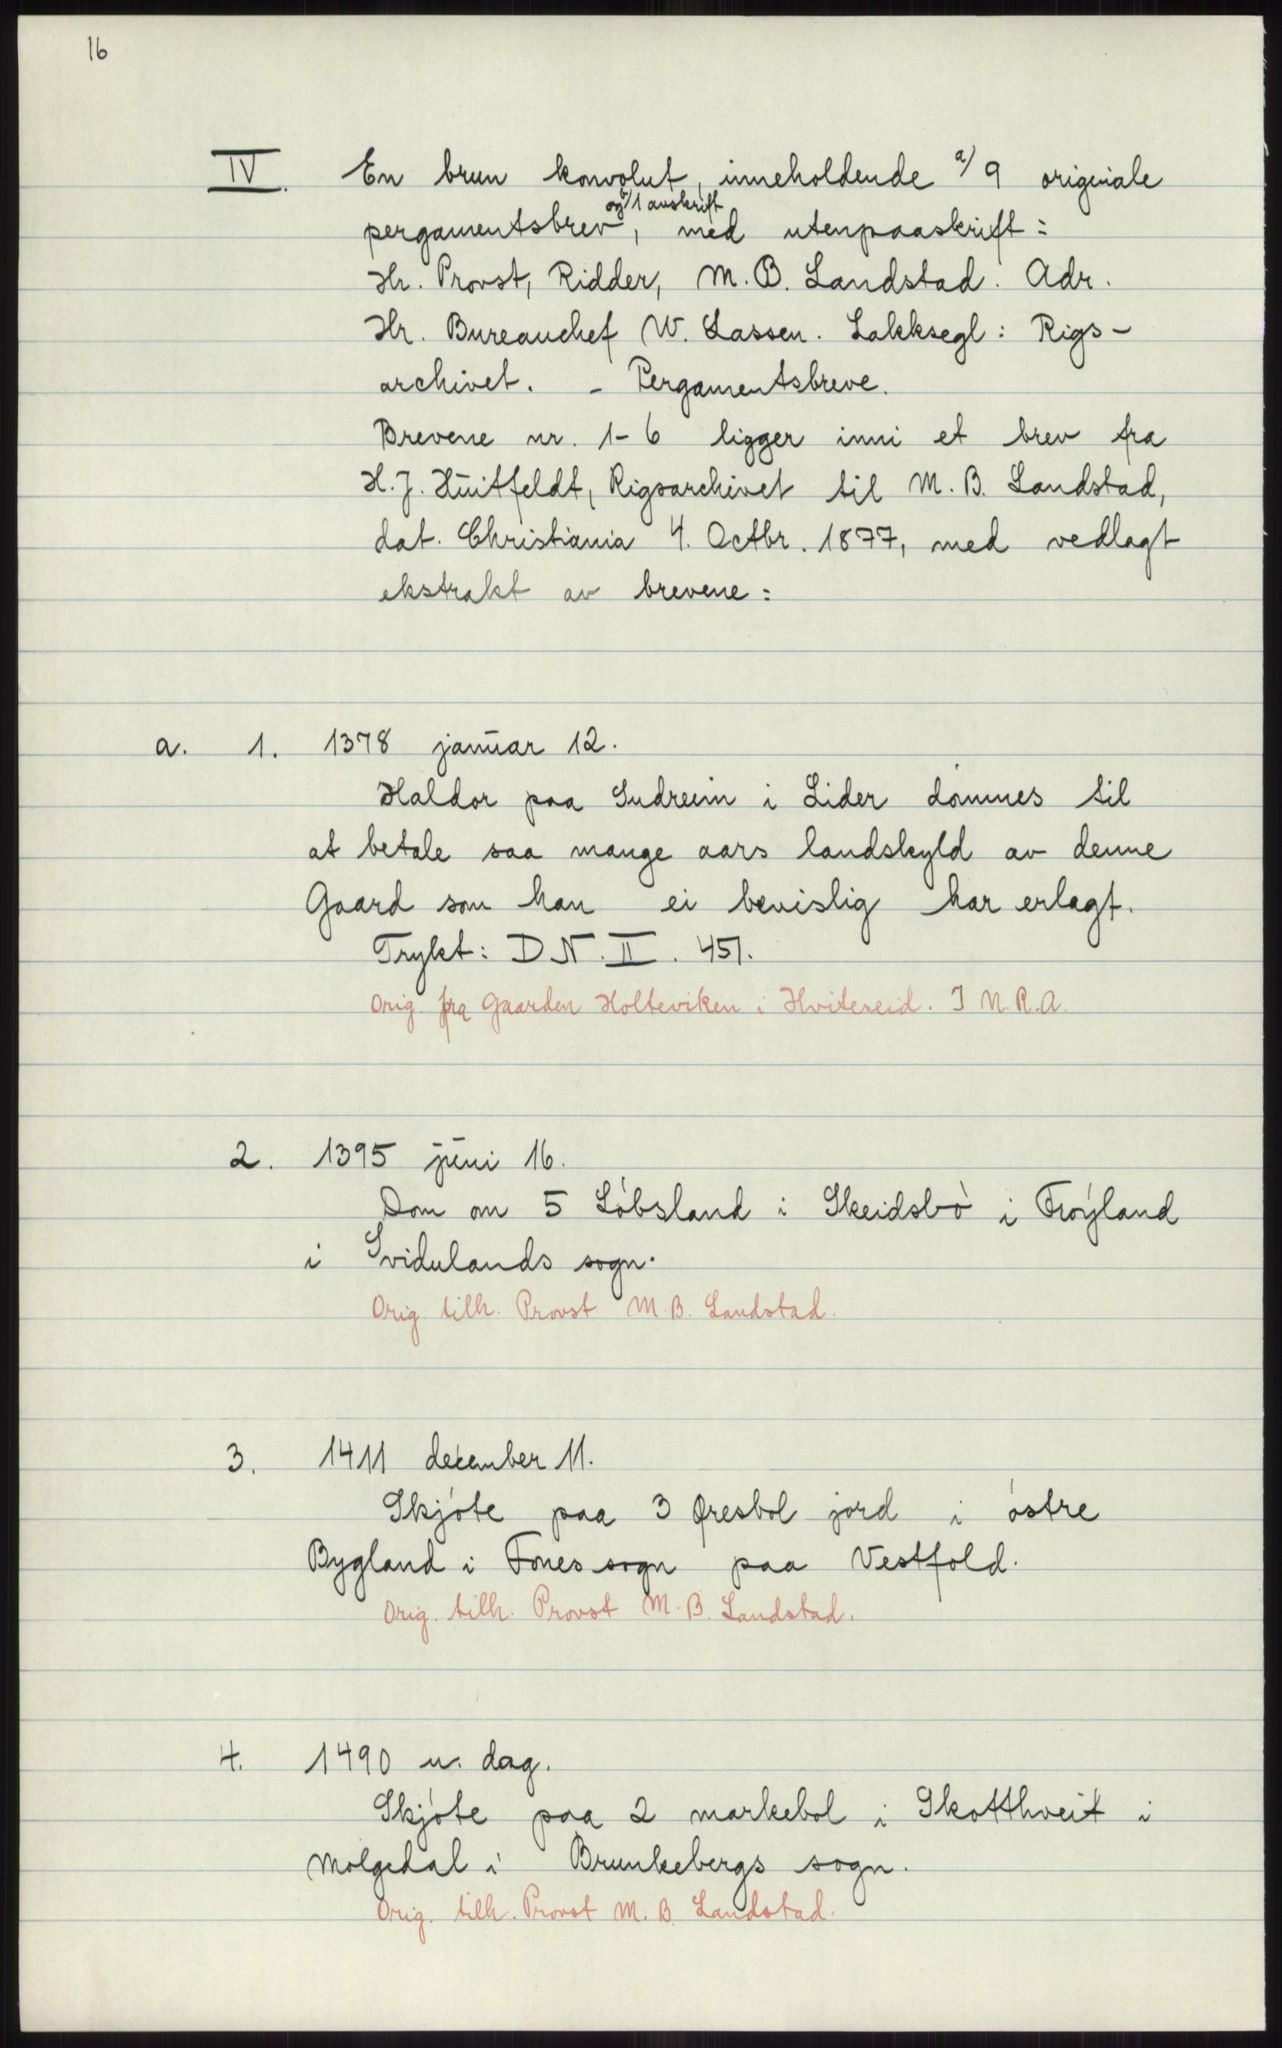 16
IV. En brun konvolut, inneholdende a/ 9 originale
pergamentsbrev og b/ 1 avskrift, med utenpaaskrift:
Hr. Provst, Ridder, M. B. Landstad. Adr.
Hr. Bureauchef W. Lassen. Lakksegl: Rigs-
archivet. - Pergamentsbreve.
Brevene nr. 1-6 ligger inni et brev fra
H. J. Huitfeldt, Rigsarchivet til M. B. Landstad,
dat. Christiania 4. Octbr. 1877, med vedlagt
ekstrakt av brevene:
a. 1. 1378 januar 12.
Haldor paa Sudreim i Lider dømmes til
at betale saa mange aars landskyld av denne
Gaard som han ei bevislig har erlagt.
Trykt: D.N. II. 451.
Orig. fra Gaarden Holteviken i Hviteseid. I N.R.A.
2. 1395 juni 16.
Dom om 5 Løbsland i Skeidsbø i Frøyland
i Svidulands sogn.
Orig. tilh. Provst M. B. Landstad.
3. 1411 december 11.
Skjøte paa 3 Øresbol jord i østre
Bygland i Fones sogn paa Vestfold.
Orig. tilh. Provst M. B. Landstad.
4. 1490 u. dag.
Skjøte paa 2 markebol i Skotthveit i
Molgedal i Brunkebergs sogn.
Orig. tilh. Provst M. B. Landstad.